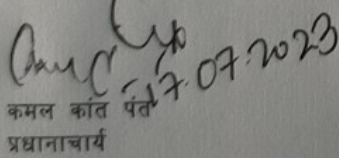 17.07.2023
कमल कांत पंत
प्रधानाचार्य